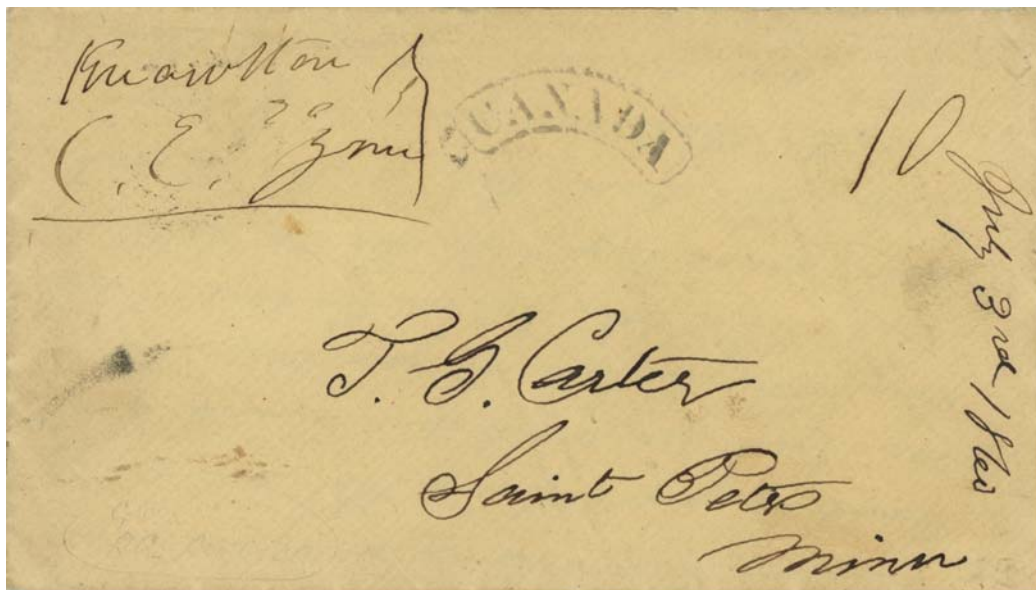 Knowlton
C. E.
CANADA
10
July 3rd
T. G. Carter
Saint Peter
Minn